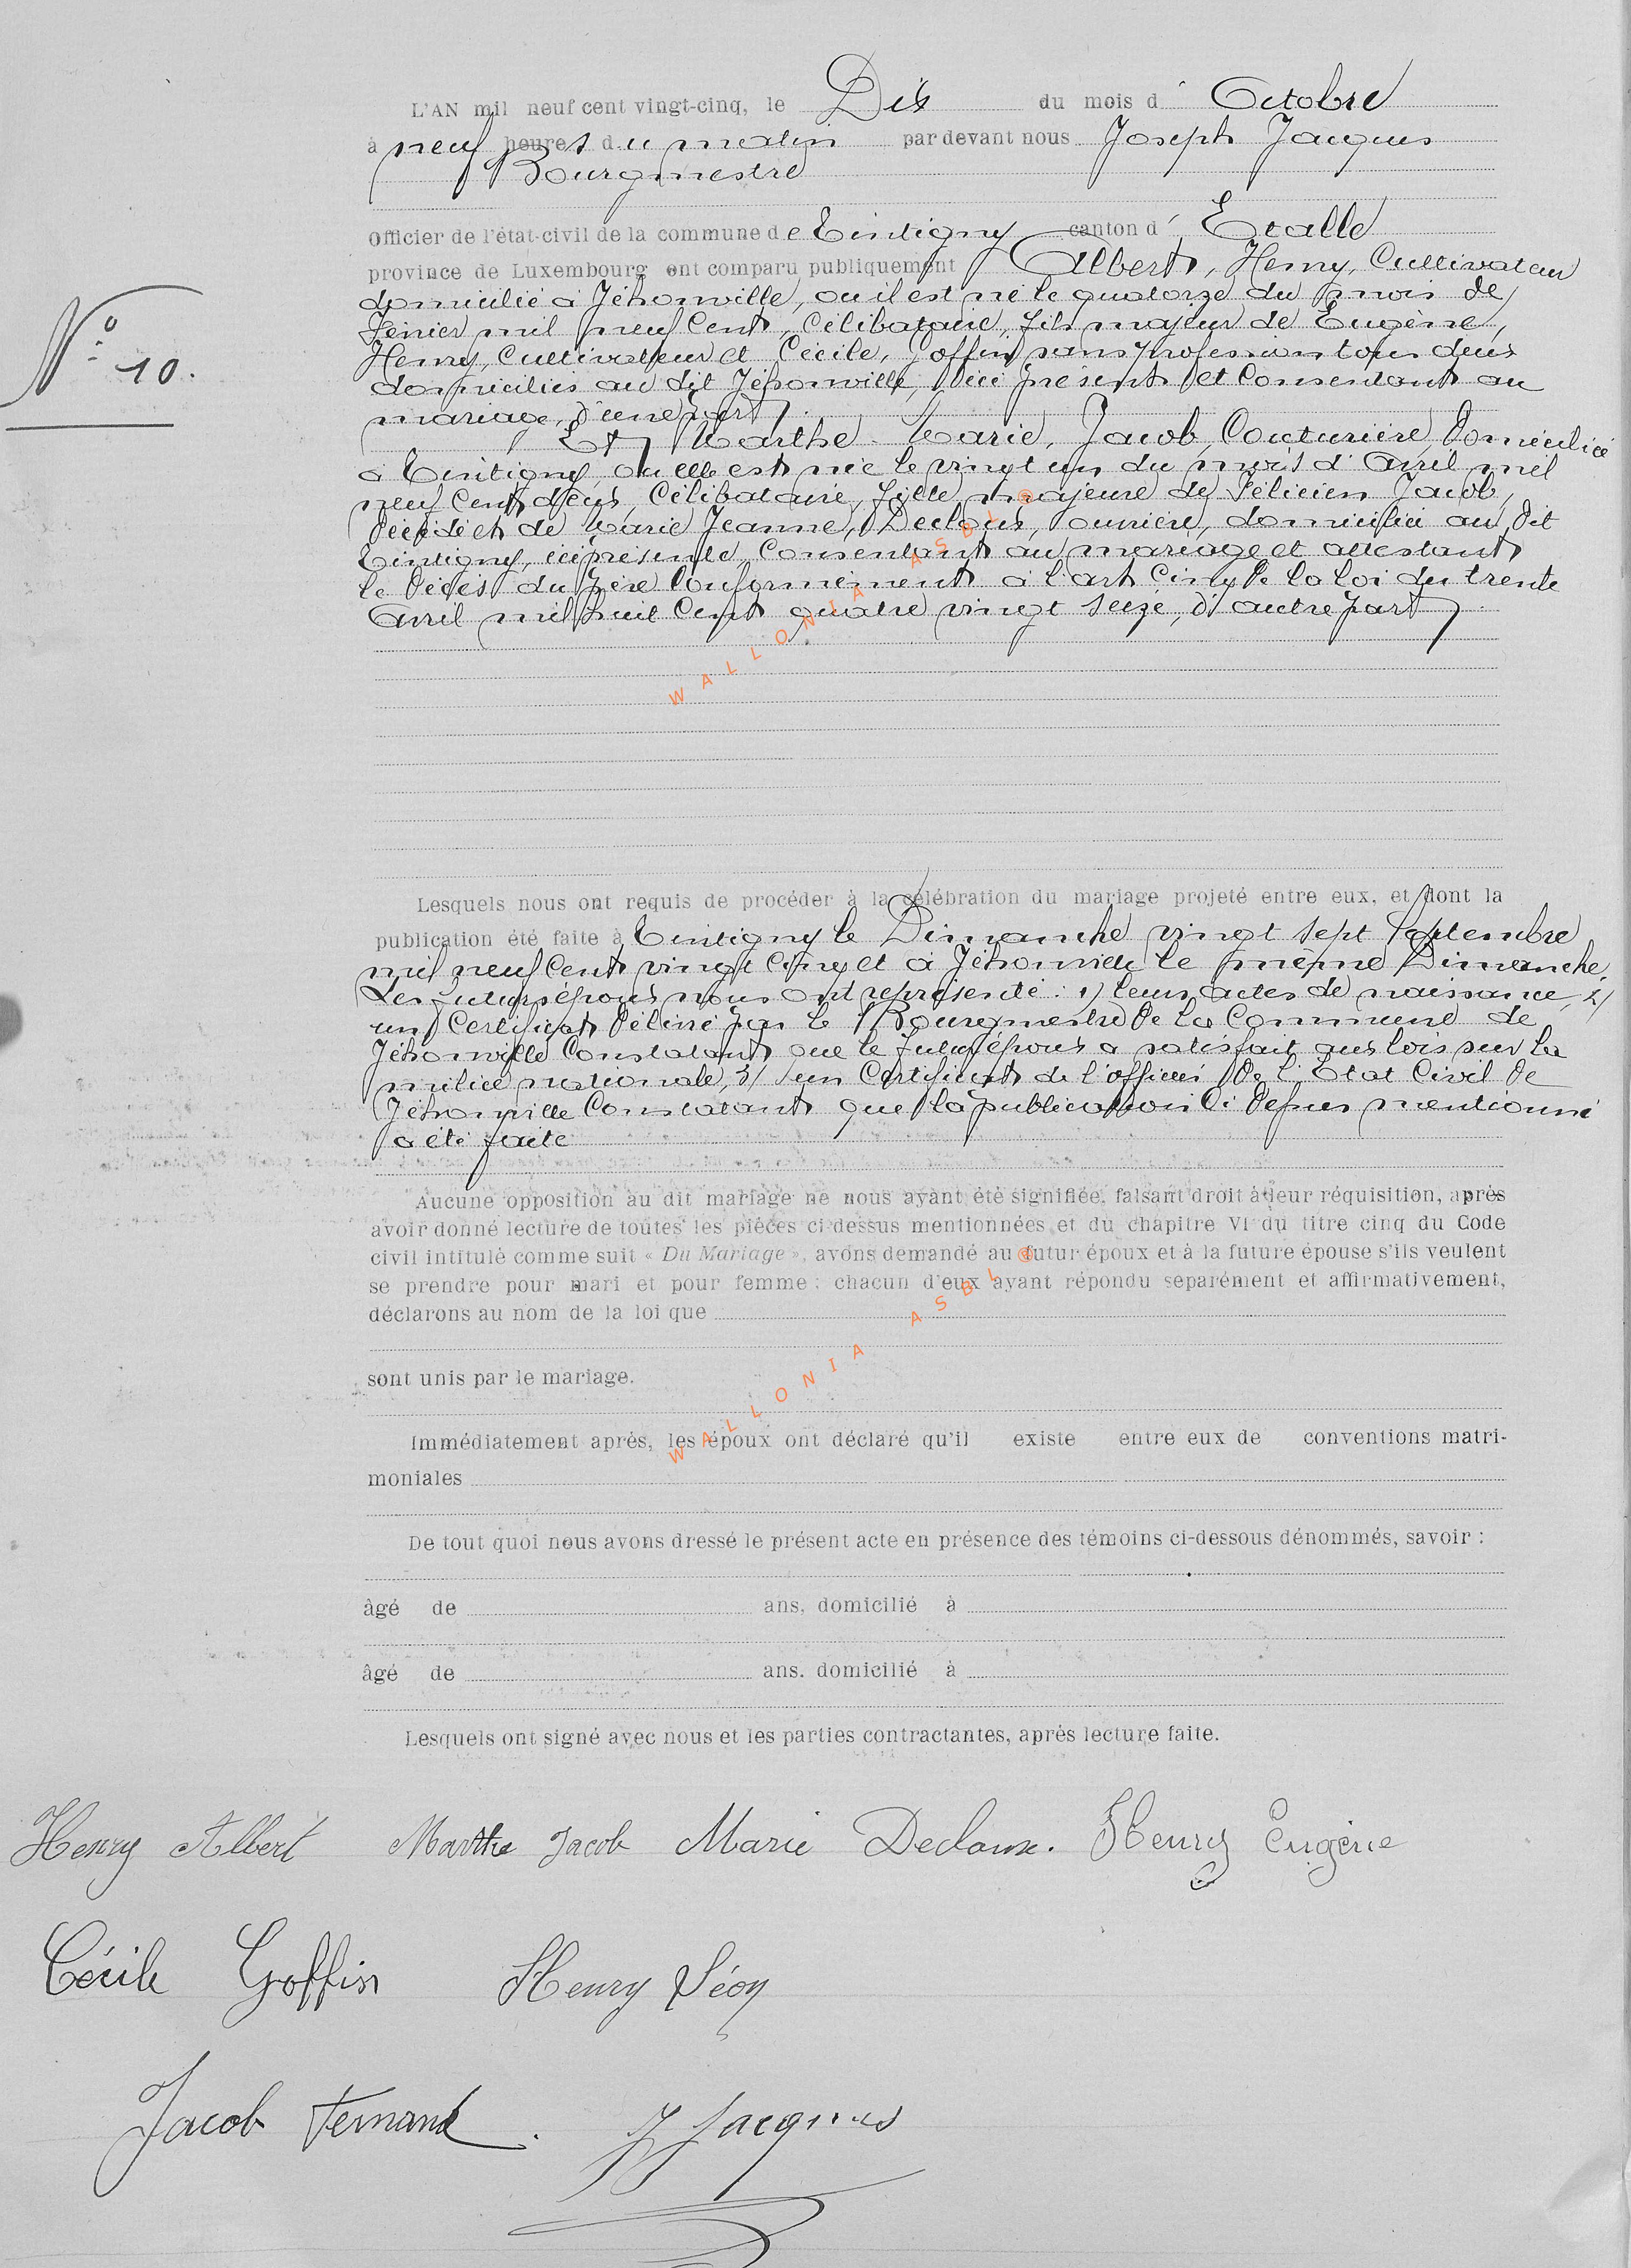 L'AN mil neuf cent vingt-cinq, le Dix du mois d' Octobre
à neuf heures du matin par devant nous Joseph Jacques
Bourgmestre
Officier de l'état-civil de la commune de Tintigny canton d' Etalle
province de Luxembourg ont comparu publiquement Albert, Henry, Cultivateur
domicilié à Jéhonville, où il est né le quatorze du mois de
N° 10.
Février mil neuf Cent, Célibataire, fils majeur de Eugène,
Henry, Cultivateur et Cécile, Goffin sans profession tous deux
domiciliés au dit Jéhonville, ici présents et Consentant au
mariage, d'une part
Et Marthe Marie, Jacob, Couturière, domiciliée
à Tintigny, où elle est née le vingt un du mois d'Avril mil
neuf Cent deux, Célibataire, fille majeure de Félicien Jacob,
décédé et de Marie Jeanne, Decloux, ouvrière, domiciliée au dit
Tintigny, ici présente, Consentant au mariage et attestant
le décès du père Conformément à l'art Cinq de la loi du trente
Avril mil huit Cent quatre vingt seize, d'autre part
WALLONIA ASBL ®
Lesquels nous ont requis de procéder à la célébration du mariage projeté entre eux, et dont la
publication été faite à Tintigny le Dimanche vingt sept Septembre
mil neuf Cent vingt Cinq et à Jéhonville le même Dimanche.
Les futurs époux nous ont représenté : 1/ leurs actes de naissance, 2/
un Certificat délivré par le Bourgmestre de la Commune de
Jéhonville Constatant que le futur époux a satisfait aux lois sur la
milice nationale, 3/ un Certificat de l'officier de l'Etat Civil de
Jéhonville Constatant que la publication Ci dessus mentionné
a été faite
Aucune opposition au dit mariage ne nous ayant été signifiée, faisant droit à leur réquisition, après
avoir donné lecture de toutes les pièces ci dessus mentionnées et du chapitre VI du titre cinq du Code
civil intitulé comme suit « Du Mariage », avons demandé au futur époux et à la future épouse s'ils veulent
se prendre pour mari et pour femme : chacun d'eux ayant répondu séparément et affirmativement,
déclarons au nom de la loi que
sont unis par le mariage.
WALLONIA ASBL ®
Immédiatement après, les époux ont déclaré qu'il existe entre eux de conventions matri-
moniales
De tout quoi nous avons dressé le présent acte en présence des témoins ci-dessous dénommés, savoir :
âgé de ans, domicilié à
âgé de ans. domicilié à
Lesquels ont signé avec nous et les parties contractantes, après lecture faite.
Henry Albert Marthe Jacob Marie Decloux. Henry Eugène
Cécile Goffin Henry Léon
Jacob Fernand. J Jacques